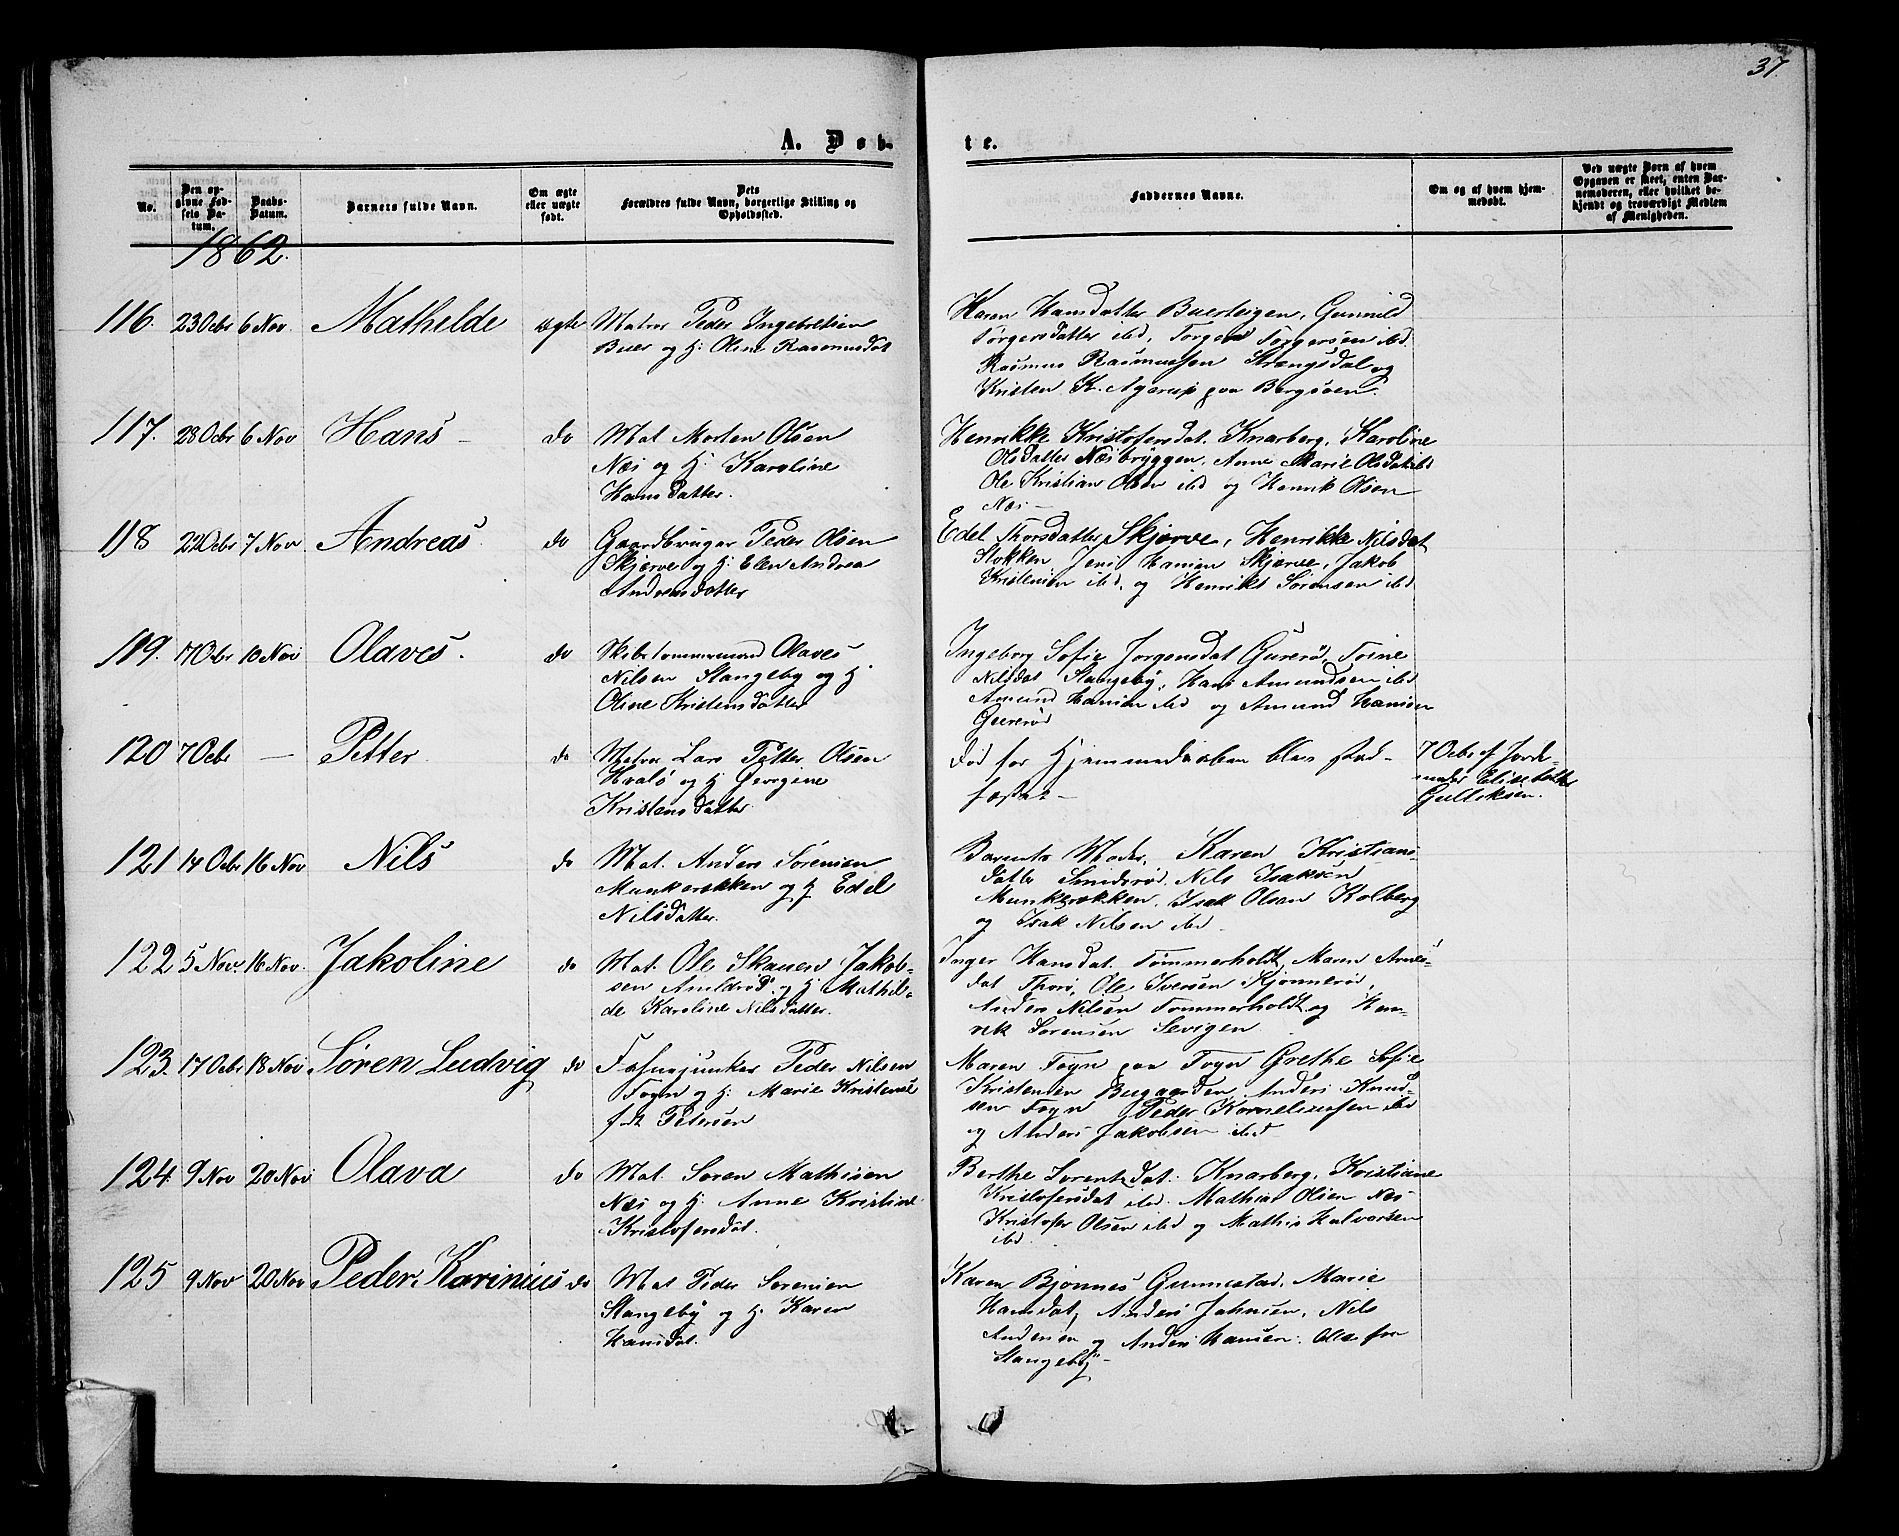 37
A. Døb-
te.
No.
Den op-
givne Fød-
sels Da-
tum.
Daabs-
Datum.
Barnets fulde Navn.
Om ægte
eller uægte
født.
Dets
Forældres fulde Navn, borgerlige Stilling og
Opholdssted.
Faddernes Navne.
Om og af hvem hjem-
medøbt.
Ved uægte Børn af hvem
Opgaven er skeet, enten Bar-
nemoderen, eller hvilket be-
kjendt og troværdigt Medlem
af Menigheden.
1862.
116. 23 Octbr 6 Nov. Mathilde ægte
Matros Peder Ingebretsen
Buer og H. Oline Rasmusdat
Karen Hansdatter Buerteigen, Gunnild
Torgersdatter ibd, Torger Torgersen ibd.
Rasmus Rasmussen Strengsdal og
Kristen K. Agerup paa Bergsøen.
117. 28 Octbr 6 Nov Hans - do
Mat Morten Olsen
Næs og H. Karoline
Hansdatter.
Henrikke Kristofersdat. Knarberg, Karoline
Olsdatter Næsbryggen, Anne Marie Olsdat ibd
Ole Kristian Olsen ibd og Henrik Olsen
Næs -
118 22 Octbr 7 Nov Andreas. do
Gaardbruger Peder Olsen
Skjerve og H. Elen Andrea
Andreasdatter
Edel Thorsdatter Skjerve, Henrikke Nilsdat
Stokken, Jens Hansen Skjerve, Jakob
Kristensen ibd, og Henrikt Sørensen ibd
119. 17 Octbr 10 Nov Olaves. do
Skibstømmermand Olaves
Nilsen Stangeby og H
Oline Kristensdatter
Ingeborg Sofie Jorgensdat Gurerød, Torine
Nilsdat Stangeby, Hans Amundsen ibd
Amund Hansen ibd og Amund Hansen
Gurerød
120 7 Octbr - Petter. do
Matros Lars Petter Olsen
Hvalø og H Georgine
Kristensdatter
død før Hjemmedaaben blev stad-
fæstet -
7 Octbr af Jorde-
moder Elisebethe
Gulliksen.
121 14 Octbr 16 Nov Nils do
Mat. Anders Sørensen
Munkerekken og H Edel
Nilsdatter.
Barnets Moder, Karen Kristians-
datter Smidsrød, Nils Isaksen
Munkerekken, Isak Olsen Kolberg
og Isak Nilsen ibd.
122 5 Nov. 16 Nov. Jakoline do
Mat. Ole Skauen Jakob-
sen Amldrød og H Mathil-
de Karoline Nilsdatter.
Inger Hansdat. Tømmerholdt, Maren Arnes-
dat Thorø, Ole Iversen Kjønnerød,
Anders Nilsen Tømmerholdt og Hen-
rik Sørensen Sevigen
123. 17 Octbr 18 Nov Søren Ludvig do
Peder Nilsen
Fogn og H. Marie Kristense
født Petersen
Maren Fogn paa Fogn Grethe Sofie
Kristensen Bugaarden, Anders Knud-
sen Fogn Peder Korneliussen ibd
og Anders Jakobsen ibd
124. 9 Nov 20 Nov Olava do
Mat. Søren Mathisen
Næs og H. Anne Kristine
Kristofersdat.
Berthe Sørentzdat. Knarberg, Kristiane
Kristofersdat ibd. Mathias Olsen Næs-
Kristofer Olsen ibd og Mathis Halvorsen
ibd
125 9 Nov 20 Nov Peder Karinius do
Mat Peder Sørensen
Stangeby og H. Karen
Hansdat.
Karen Bjønnes Gunnestad, Marie
Hansdat, Anders Jahnsen, Nils
Andersen og Anders Hansen. Alle fra
Stangeby -